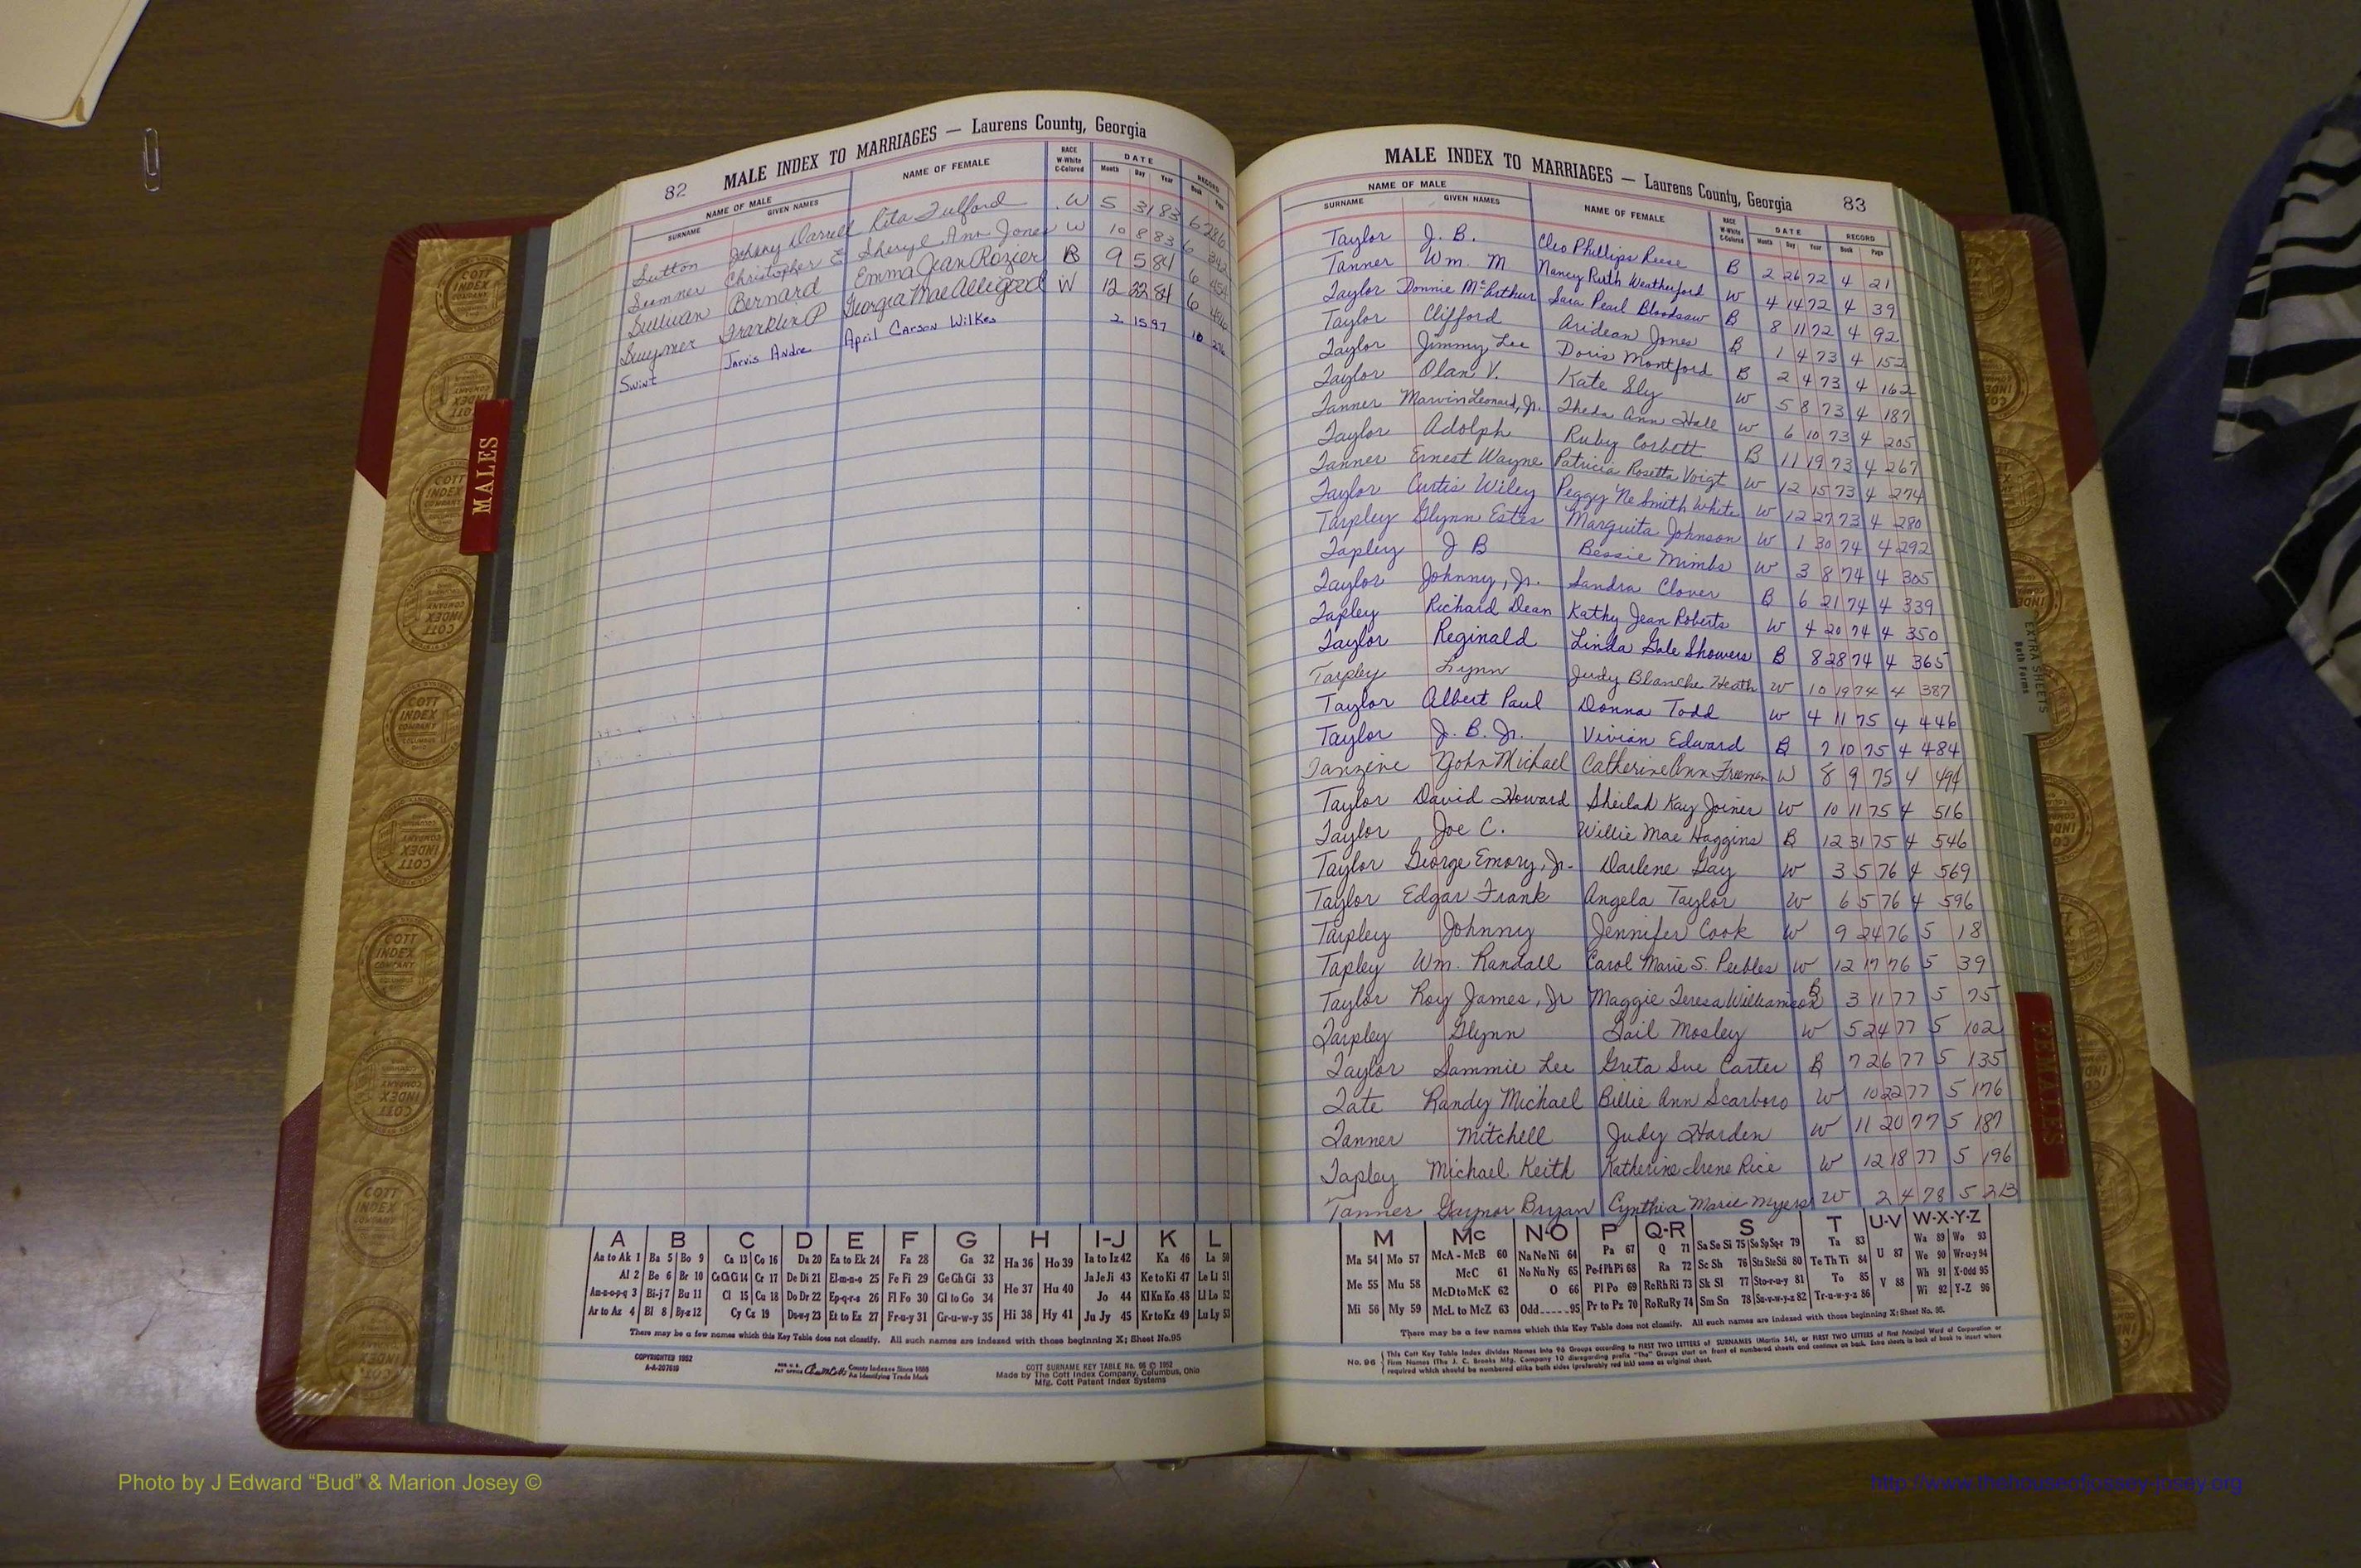 82 MALE INDEX TO MARRIAGES — Laurens County, Georgia
NAME OF MALE NAME OF FEMALE RACE W-White C-Colored DATE RECORD
SURNAME GIVEN NAMES Month Day Year Book Page
Sutton Johnny Darrell Rita Fulford W 5 31 83 6 286
Sumner Christopher E Sheryl Ann Jones W 10 8 83 6 342
Sullivan Bernard Emma Jean Rozier B 9 5 84 6 454
Franklin P Georgia Mae Alligood W 12 22 84 6
Swint Jarvis Andre April Carson Wilkes 2 15 97 10
A B C D E F G H I-J K L
Aa to Ak 1 Ba 5 Bo 9 Ca 13 Co 16 Da 20 Ea to Ek 24 Fa 28 Ga 32 Ha 36 Ho 39 Ia to Iz 42 Ka 46 La 50
Al 2 Be 6 Br 10 Ce Ch Ci 14 Cr 17 De Di 21 El-m-n-o 25 Fe Fi 29 Ge Gh Gi 33 He 37 Hu 40 Ja Je Ji 43 Ke to Ki 47 Le Li 51
Am-n-o-p-q 3 Bi-j 7 Bu 11 Cl 15 Cu 18 Do Dr 22 Ep-q-r-s 26 Fl Fo 30 Gl to Go 34 Jo 44 Kl Kn Ko 48 Ll Lo 52
Ar to Az 4 Bl 8 By-z 12 Cy Cz 19 Du-w-y 23 Et to Ez 27 Fr-u-y 31 Gr-u-w-y 35 Hi 38 Hy 41 Ju Jy 45 Kr to Kz 49 Lu Ly 53
There may be a few names which this Key Table does not classify. All such names are indexed with those beginning X; Sheet No. 95
COPYRIGHTED 1952
A-A-207610
County Indexes Since 1888
An Identifying Trade Mark
COTT SURNAME KEY TABLE No. 96 © 1952
Made by The Cott Index Company, Columbus, Ohio
Mfg. Cott Patent Index Systems
MALE INDEX TO MARRIAGES — Laurens County, Georgia 83
NAME OF MALE NAME OF FEMALE RACE W-White C-Colored DATE RECORD
SURNAME GIVEN NAMES Month Day Year Book Page
Taylor J. B. Cleo Phillips Reese B 2 26 72 4 21
Tanner Wm. M Nancy Ruth Weatherford W 4 14 72 4 39
Taylor Donnie McArthur Sara Pearl Bloodsaw B 8 11 72 4 92
Taylor Clifford Aridean Jones B 1 4 73 4 152
Taylor Jimmy Lee Doris Montford B 2 4 73 4 162
Taylor Olan V. Kate Sly W 5 8 73 4 187
Tanner Marvin Leonard, Jr. Theda Ann Hall W 6 10 73 4 205
Taylor Adolph Ruby Corbett B 11 19 73 4 267
Tanner Ernest Wayne Patricia Rosetta Voigt W 12 15 73 4 274
Taylor Curtis Wiley Peggy NeSmith White W 12 27 73 4 280
Tarpley Glynn Estes Marguita Johnson W 1 30 74 4 292
Tapley J B Bessie Mimbs W 3 8 74 4 305
Taylor Johnny, Jr. Sandra Clover B 6 21 74 4 339
Tapley Richard Dean Kathy Jean Roberts W 4 20 74 4 350
Taylor Reginald Linda Gale Showers B 8 28 74 4 365
Tarpley Lynn Judy Blanche Heath W 10 19 74 4 387
Taylor Albert Paul Donna Todd W 4 11 75 4 446
Taylor J. B. Jr. Vivian Edward B 7 10 75 4 484
Tanzine John Michael Catherine Ann Freeman W 8 9 75 4 494
Taylor David Howard Sheilah Kay Joiner W 10 11 75 4 516
Taylor Joe C. Willie Mae Haggins B 12 31 75 4 546
Taylor George Emory, Jr. Darlene Gay W 3 5 76 4 569
Taylor Edgar Frank Angela Taylor W 6 5 76 4 596
Tarpley Johnny Jennifer Cook W 9 24 76 5 18
Tapley Wm. Randall Carol Marie S. Peebles W 12 17 76 5 39
Taylor Roy James, Jr Maggie Teresa Williamson B 3 11 77 5 75
Tarpley Glynn Gail Mosley W 5 24 77 5 102
Taylor Sammie Lee Greta Sue Carter B 7 26 77 5 135
Tate Randy Michael Billie Ann Scarboro W 10 22 77 5 176
Tanner Mitchell Judy Harden W 11 20 77 5 187
Tapley Michael Keith Katherine Irene Rice W 12 18 77 5 196
Tanner Gaynor Bryan Cynthia Marie Myers W 2 4 78 5 213
M Mc N-O P Q-R S T U-V W-X-Y-Z
Ma 54 Mo 57 McA - McB 60 Na Ne Ni 64 Pa 67 Q 71 Sa Se Si 75 So Sp Sq-r 79 Ta 83 U 87 Wa 89 Wo 93
Me 55 Mu 58 McC 61 No Nu Ny 65 Pe-f Ph Pi 68 Ra 72 Sc Sh 76 Sta Ste Sti 80 Te Th Ti 84 We 90 Wr-u-y 94
McD to McK 62 O 66 Pl Po 69 Re Rh Ri 73 Sk Sl 77 Sto-r-u-y 81 To 85 V 88 Wh 91 X-Odd 95
Mi 56 My 59 McL to McZ 63 Odd.....95 Pr to Pz 70 Ro Ru Ry 74 Sm Sn 78 Su-v-w-y-z 82 Tr-u-w-y-z 86 Wi 92 Y-Z 96
There may be a few names which this Key Table does not classify. All such names are indexed with those beginning X; Sheet No. 95.
No. 96
This Cott Key Table Index divides Names into 96 Groups according to FIRST TWO LETTERS of SURNAMES (Martin 54), or FIRST TWO LETTERS of First Principal Word of Corporation or
Firm Names (The J. C. Brooks Mfg. Company 10 disregarding prefix "The" Groups start on front of numbered sheets and continue on back. Extra sheets in back of book to insert where
required which should be numbered alike both sides (preferably red ink) same as original sheet.
MALES
FEMALES
EXTRA SHEETS
Both Forms
COTT INDEX COMPANY
Photo by J Edward “Bud” & Marion Josey ©
http://www.thehouseofjossey-josey.org